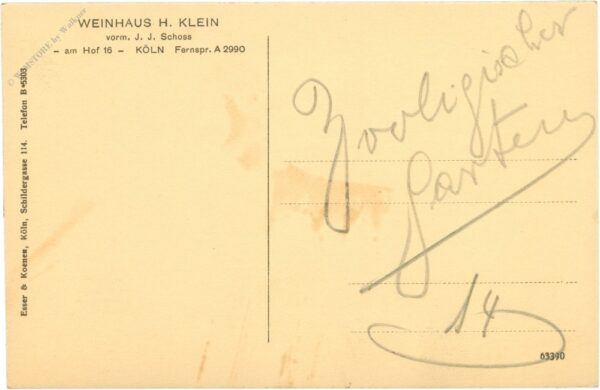 WEINHAUS H. KLEIN
vorm. J. J. Schoss
- am Hof 16 - KÖLN Fernspr. A 2990
Esser & Koenen, Köln, Schildergasse 114. Telefon B 5303
Zooligischer
Garten
14
63390